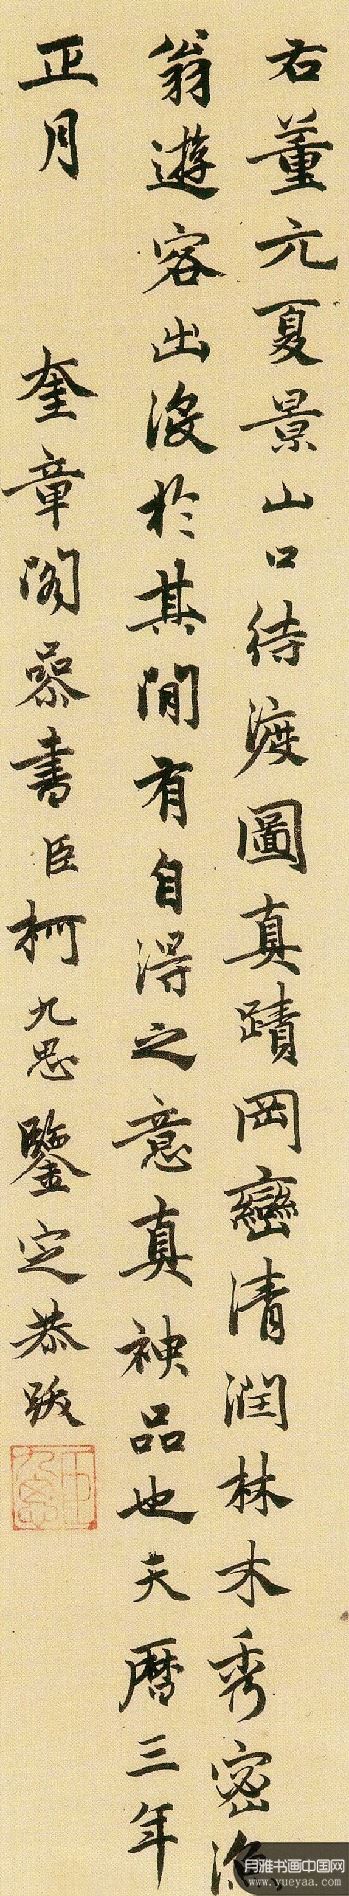 右董元夏景山口待渡圖真蹟岡巒清潤林木秀密漁
翁遊客出没於其間有自得之意真神品也天曆三年
正月 奎章閣參書臣柯九思鑒定恭跋
月雅书画中国网
www.yueyaa.com